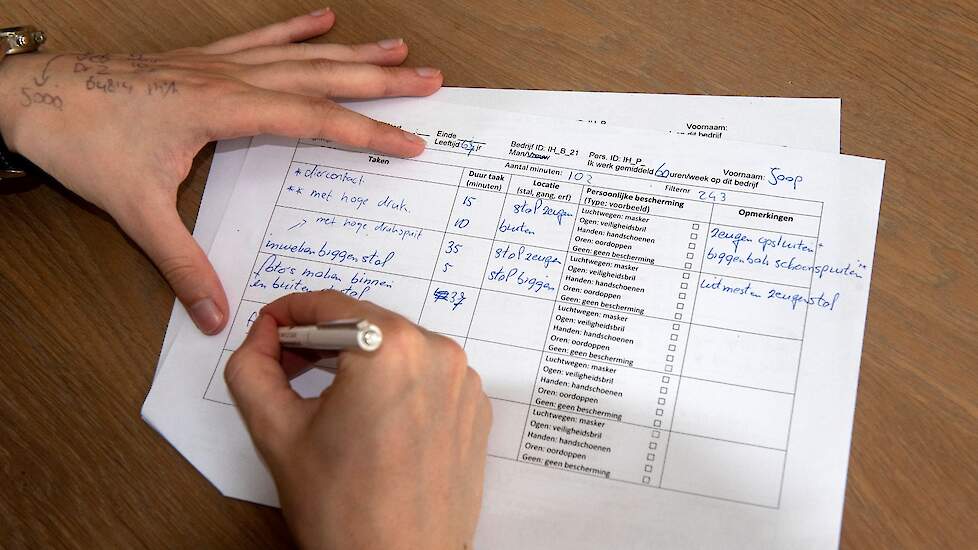 Voornaam:
op dit bedrijf
Einde
Leeftijd 64 jf
Bedrijf ID: IH_B_21
Man/Vrouw
Pers. ID: IH_P_
Ik werk gemiddeld 60 uren/week op dit bedrijf
Voornaam:
Joop
Aantal minuten: 102
Filternr 243
Taken
Duur taak
(minuten)
Locatie
(stal, gang, erf)
Persoonlijke bescherming
(Type: voorbeeld)
Opmerkingen
* diercontact
15
stal zeugen
Luchtwegen: masker
Ogen: veiligheidsbril
Handen: handschoenen
Oren: oordoppen
Geen: geen bescherming
zeugen opsluiten *
** met hoge druk.
10
buiten
biggenbak schoonspuiten **
met hoge drukspuit
inweken biggenstal
35
stal zeugen
Luchtwegen: masker
Ogen: veiligheidsbril
Handen: handschoenen
Oren: oordoppen
Geen: geen bescherming
uitmesten zeugenstal
foto's maken binnen
en buiten de stal
5
stal biggen
37
Luchtwegen: masker
Ogen: veiligheidsbril
Handen: handschoenen
Oren: oordoppen
Geen: geen bescherming
Luchtwegen: masker
Ogen: veiligheidsbril
Handen: handschoenen
Oren: oordoppen
Geen: geen bescherming
Luchtwegen: masker
Ogen: veiligheidsbril
Handen: handschoenen
Oren: oordoppen
Geen: geen bescherming